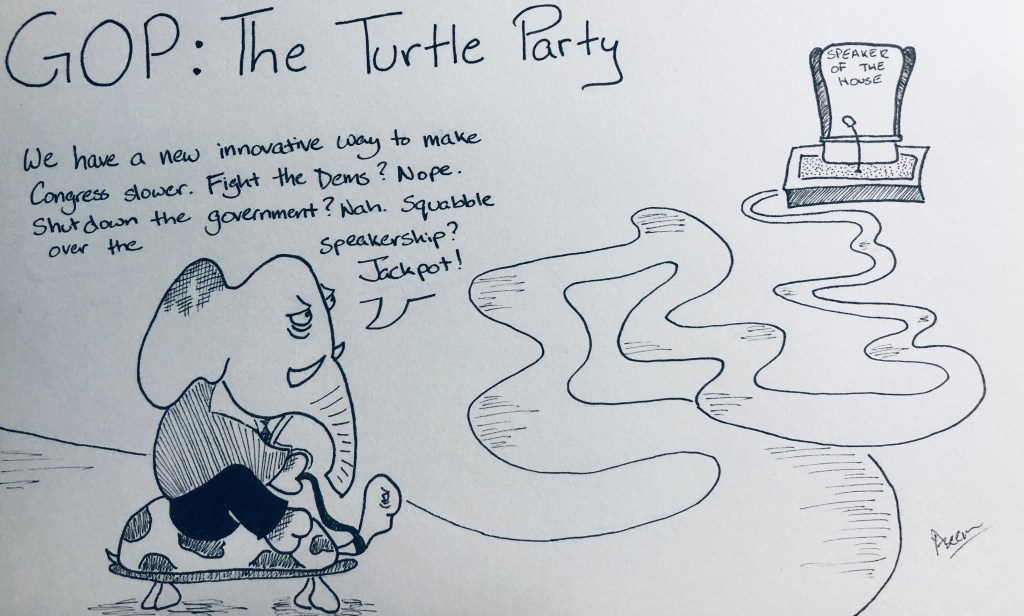 GOP: The Turtle Party
We have a new innovative way to make
Congress slower. Fight the Dems? Nope.
Shutdown the government? Nah. Squabble
over the
speakership?
Jackpot!
SPEAKER
OF THE
HOUSE